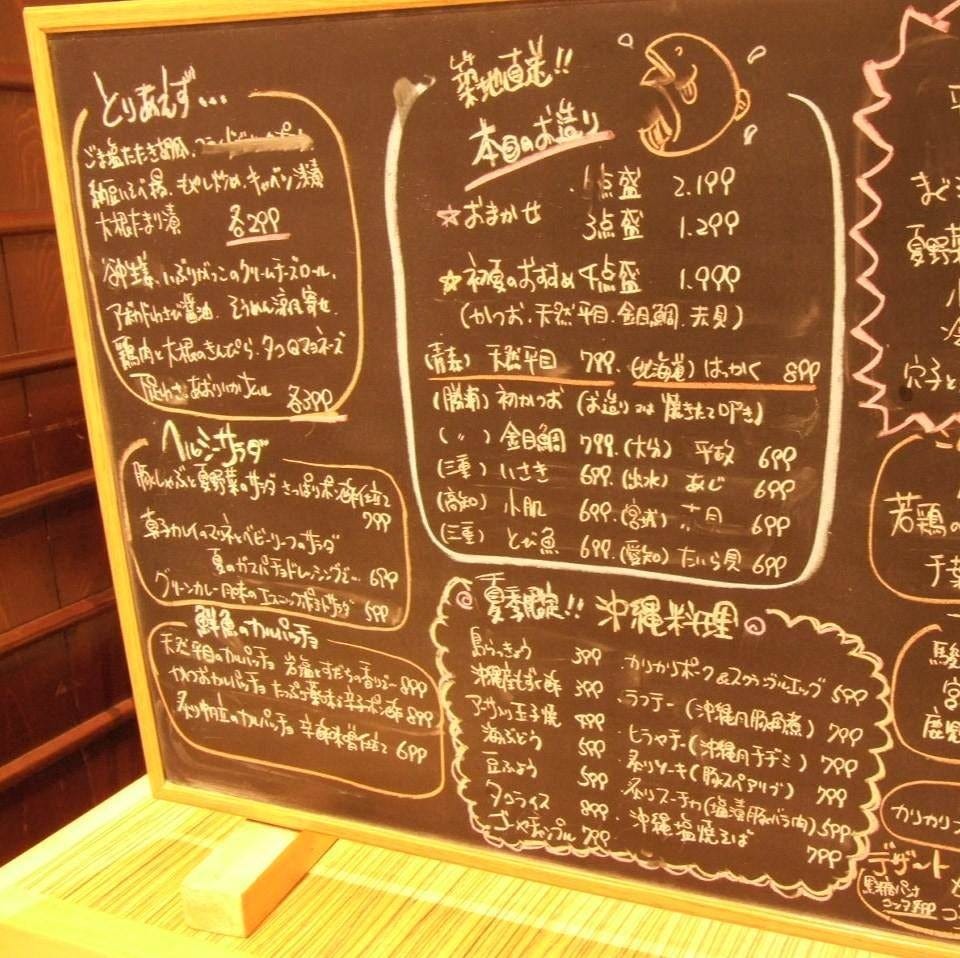 とりあえず…
ごま塩たたき胡瓜、
納豆いそべ揚、もやしザーサイ、キャベツ浅漬
大根たまり漬 各299
谷中生姜、いぶりがっこのクリームチーズロール、
アボカドわさび醤油、そうめん涼風寄せ、
鶏肉と大根のきんぴら、タコQマヨネーズ
各399
ヘルシーサラダ
豚しゃぶと夏野菜のサラダ さっぱりポン酢仕立て
799
子カレイのマリネとベビーリーフのサラダ
夏のガスパチョドレッシングで… 699
グリーンカレー風味のエスニックポテトサラダ 599
鮮魚のカルパッチョ
天然平目のカルパッチョ 岩塩とすだちの香りで… 899
かつおカルパッチョ たっぷり薬味と辛子ポン酢 899
炙り のカルパッチョ 辛酢味噌仕立て 699
築地直送!!
本日のお造り
点盛 2.199
☆おまかせ 3点盛 1.299
☆初夏のおすすめ 4点盛 1.999
(かつお、天然平目、金目鯛、赤貝)
(青森) 天然平目 799 (北海道) はっかく 899
(勝浦) 初かつお (お造り又は焼きたて叩き)
(〃) 金目鯛 799 (大分) 平政 699
(三重) いさき 699 (出水) あじ 699
(高知) 小肌 699 (宮城) 赤貝 699
(三重) とび魚 699 (愛知) たいら貝 699
夏季限定!! 沖縄料理
島らっきょう 399
沖縄産もずく酢 399
アーサ入り玉子焼 499
海ぶどう 599
豆ふよう 599
タコライス 899
ゴーヤチャンプル 799
カリカリポーク&スクランブルエッグ 599
ラフテー(沖縄風豚角煮) 799
ヒラヤチー(沖縄風チヂミ) 799
炙りソーキ(豚スペアリブ) 799
炙りスーチカ(塩漬豚バラ肉) 599
沖縄塩焼そば
799
まぐ
夏野菜
穴子と
若鶏の
千葉
カリカリ
デザート
黒糖パンナ
コッタ